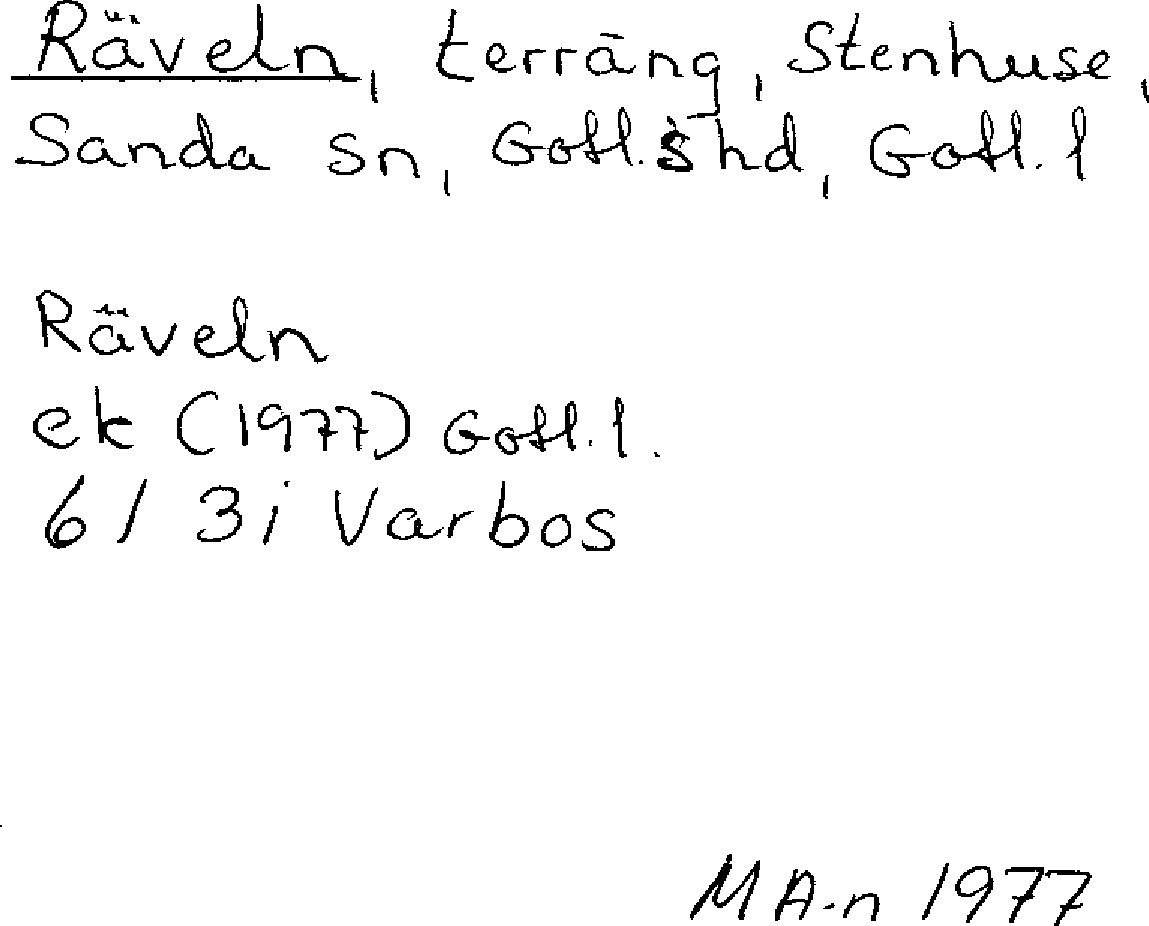 Räveln, terräng, Stenhuse,
Sanda sn, Gotl.s hd, Gotl. l
Räveln
ek (1977) Gotl. l.
6I 3i Varbos
MA-n 1977